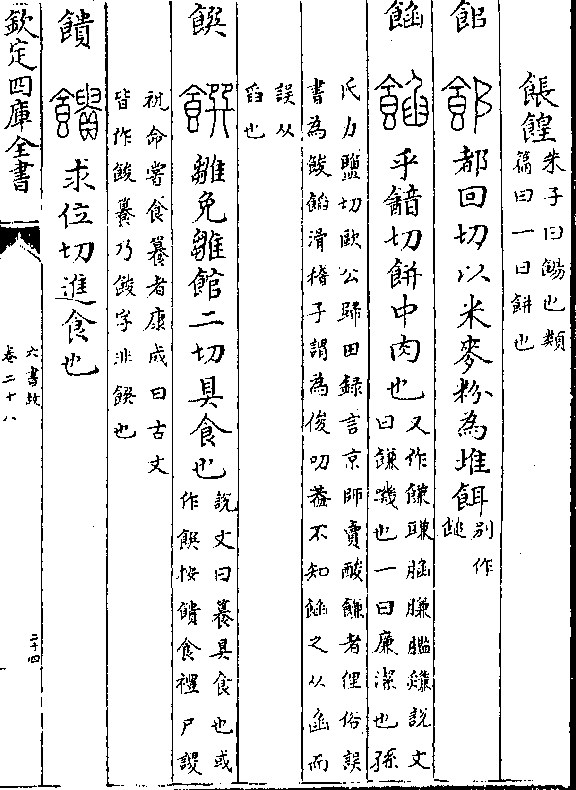 餦餭朱子曰餳也類
篇曰一曰餅也
都回切以米麥粉為堆餌别作
餡乎韽切餅中肉也又作䭑說文
曰䭑嘰也一曰廉潔也孫
氏力鹽切歐公歸田録言京師賣酸䭑者俚俗誤
書為餕饀滑稽子謂為俊叨葢不知餡之从臽而
誤从
舀也
饌雛免雛館二切具食也說文曰籑具食也或
作饌按饋食禮尸謖
祝命嘗食籑者康成曰古文
皆作餕籑乃餕字非饌也
饋求位切進食也
欽定四庫全書
六書故
卷二十八
二十四